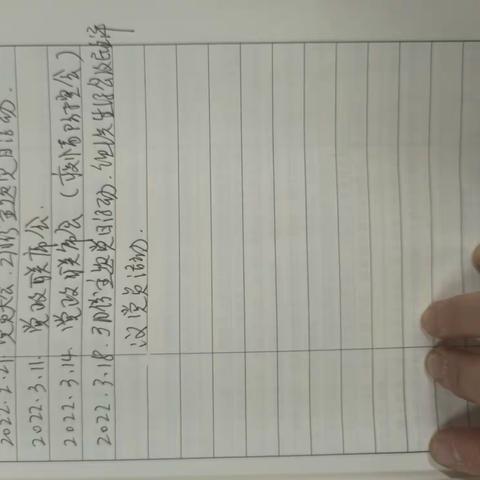 2022.2.21. 党员大会. 2月份主题党日活动.
2022.3.11. 党政联席会.
2022.3.14. 党政联席会（疫情防控会）
2022.3.18. 3月份主题党日活动. 组织生活会及民主评
议党员活动.